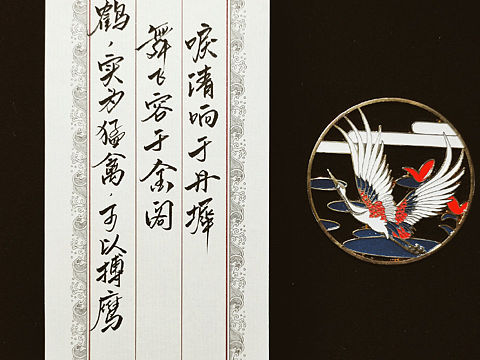 唳清响于丹墀
舞飞容于金阁
鹤，实为猛禽，可以搏鹰